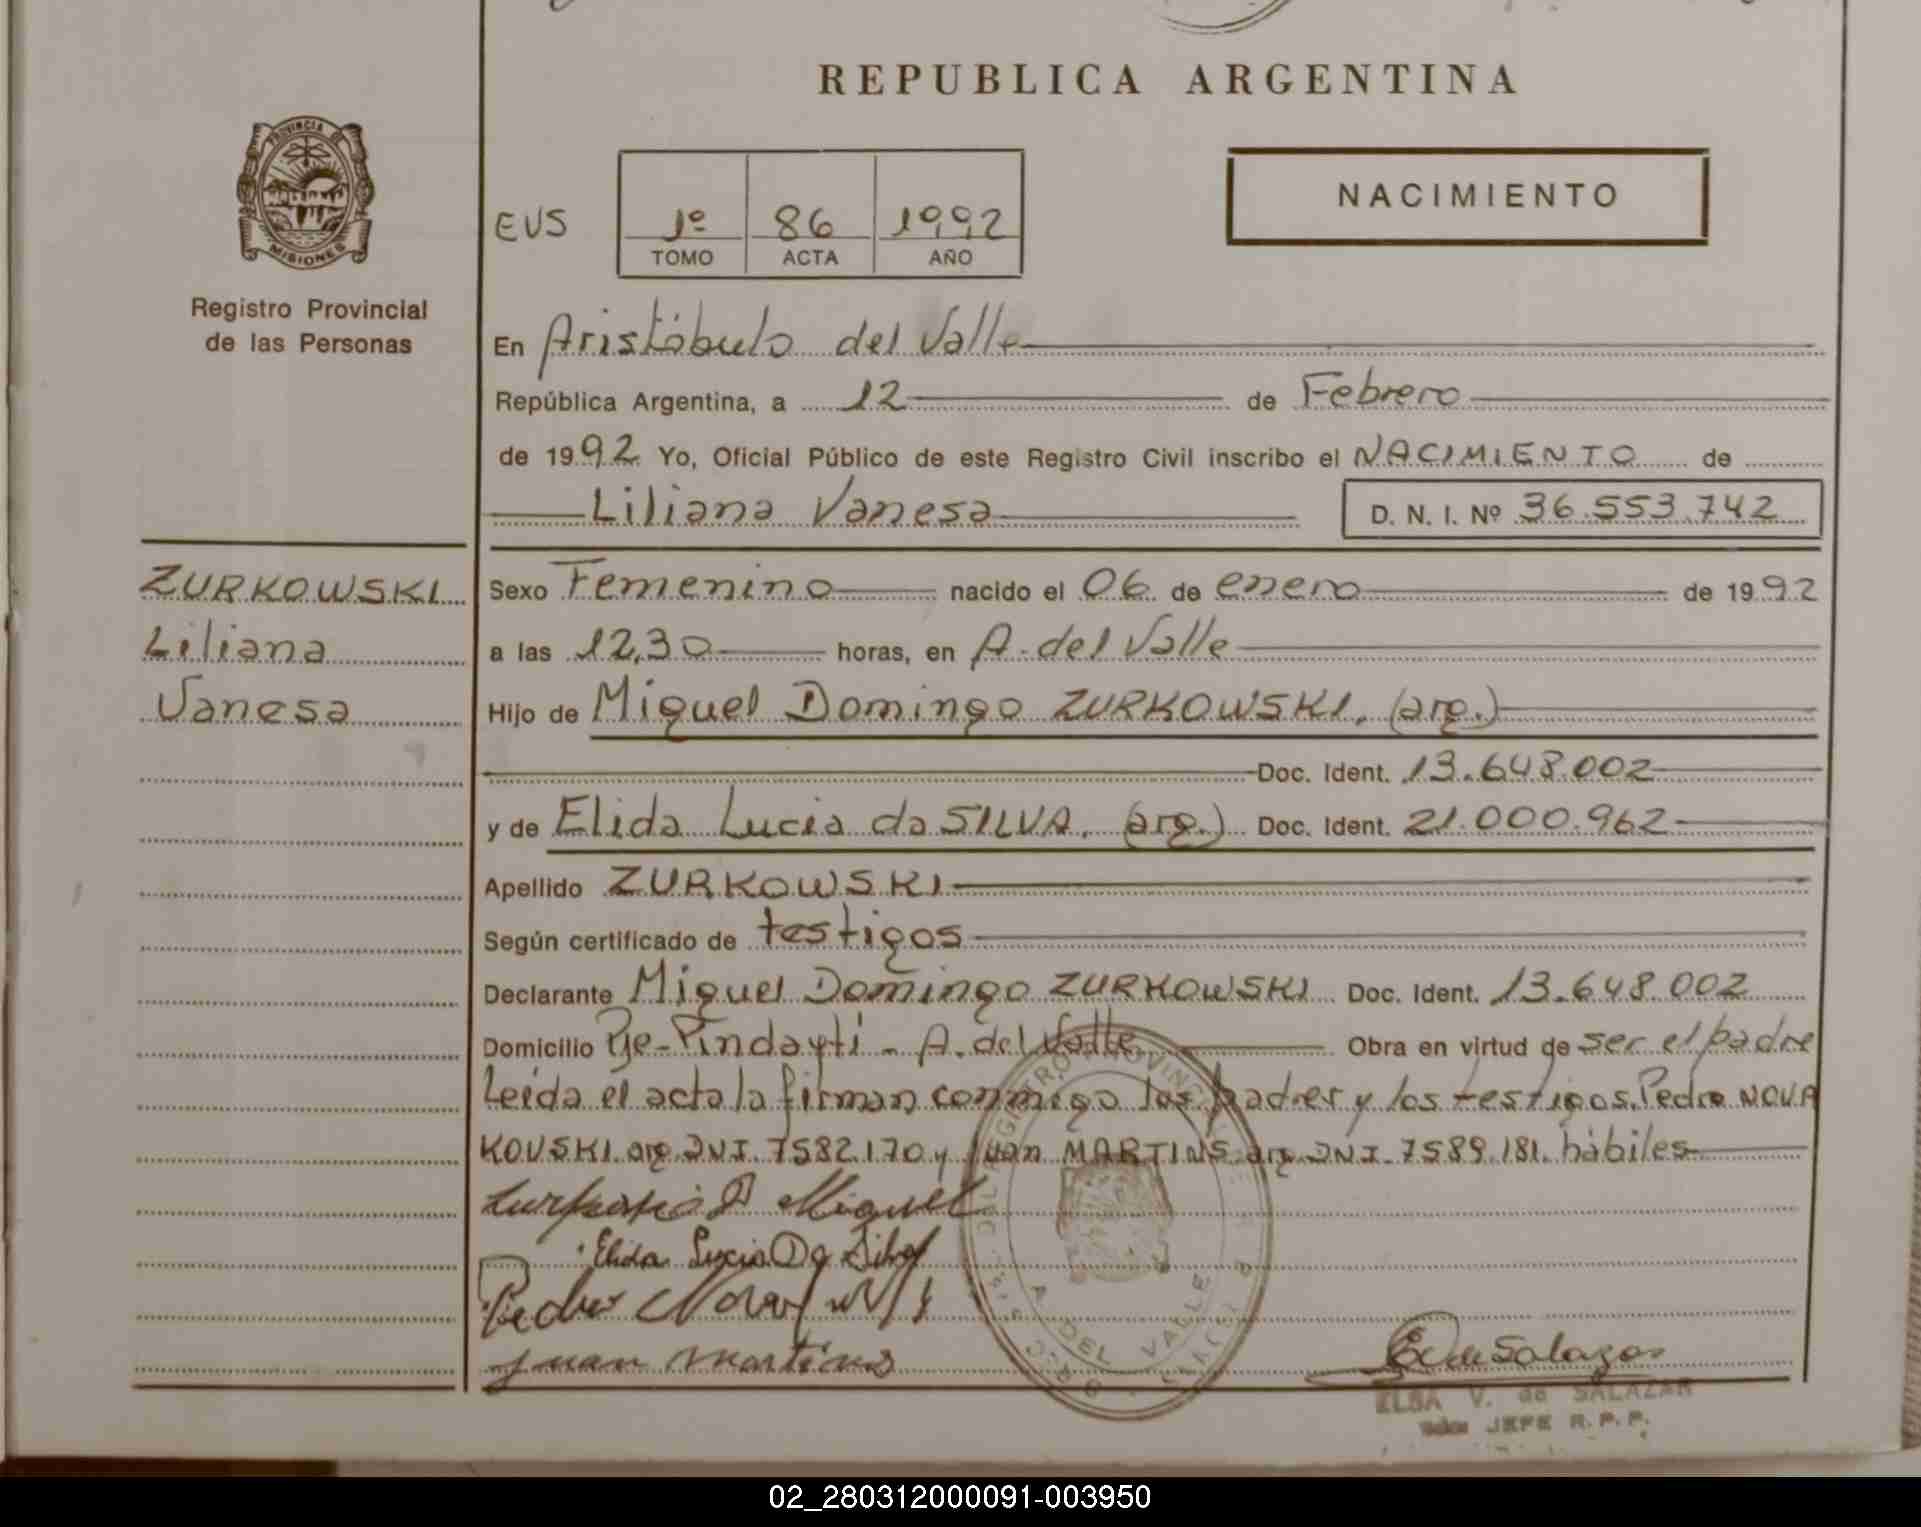 REPUBLICA ARGENTINA
PROVINCIA DE MISIONES
Registro Provincial
de las Personas
EVS
1º 86 1992
TOMO ACTA AÑO
NACIMIENTO
En Aristóbulo del Valle
República Argentina, a 12 de Febrero
de 1992 Yo, Oficial Público de este Registro Civil inscribo el NACIMIENTO de
Liliana Vanesa D. N. I. Nº 36.553.742
ZURKOWSKI
Liliana
Vanesa
Sexo Femenino nacido el 06 de enero de 1992
a las 12,30 horas, en A. del Valle
Hijo de Miguel Domingo ZURKOWSKI. (arg.)
Doc. Ident. 13.648.002
y de Elida Lucia da SILVA. (arg.) Doc. Ident. 21.000.962
Apellido ZURKOWSKI
Según certificado de testigos
Declarante Miguel Domingo ZURKOWSKI Doc. Ident. 13.648.002
Domicilio Pje-Pindaytí - A. del Valle Obra en virtud de ser el padre
Leída el acta la firman conmigo los padres y los testigos. Pedro NOVA
KOVSKI. arg. DNI. 7582.170 y Juan MARTINS. arg. DNI. 7589.181. hábiles
Miguel
Elida Lucia Da Silva
Pedro
Juan Martins
A. DEL VALLE
E V de Salazar
ELBA V. de SALAZAR
JEFE R. P. P.
02_280312000091-003950